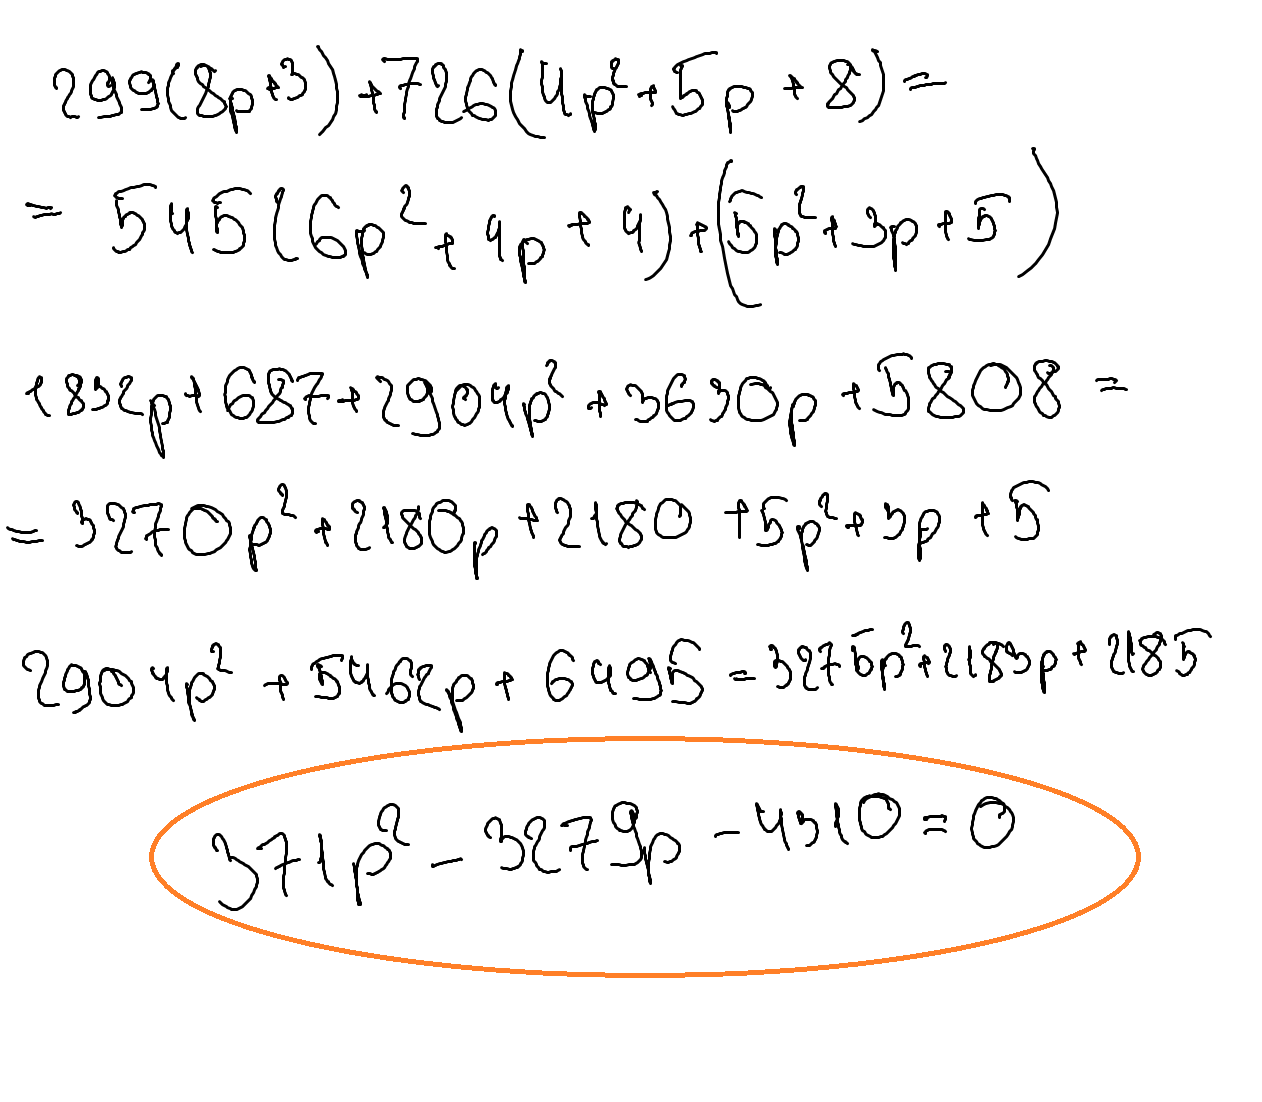 299(8p+3)+726(4p²+5p+8)=
= 545(6p²+4p+4)+(5p²+3p+5)
1832p+687+2904p²+3630p+5808=
=3270p²+2180p+2180+5p²+3p+5
2904p²+5462p+6495=3275p²+2183p+2185
371p²-3279p-4310=0